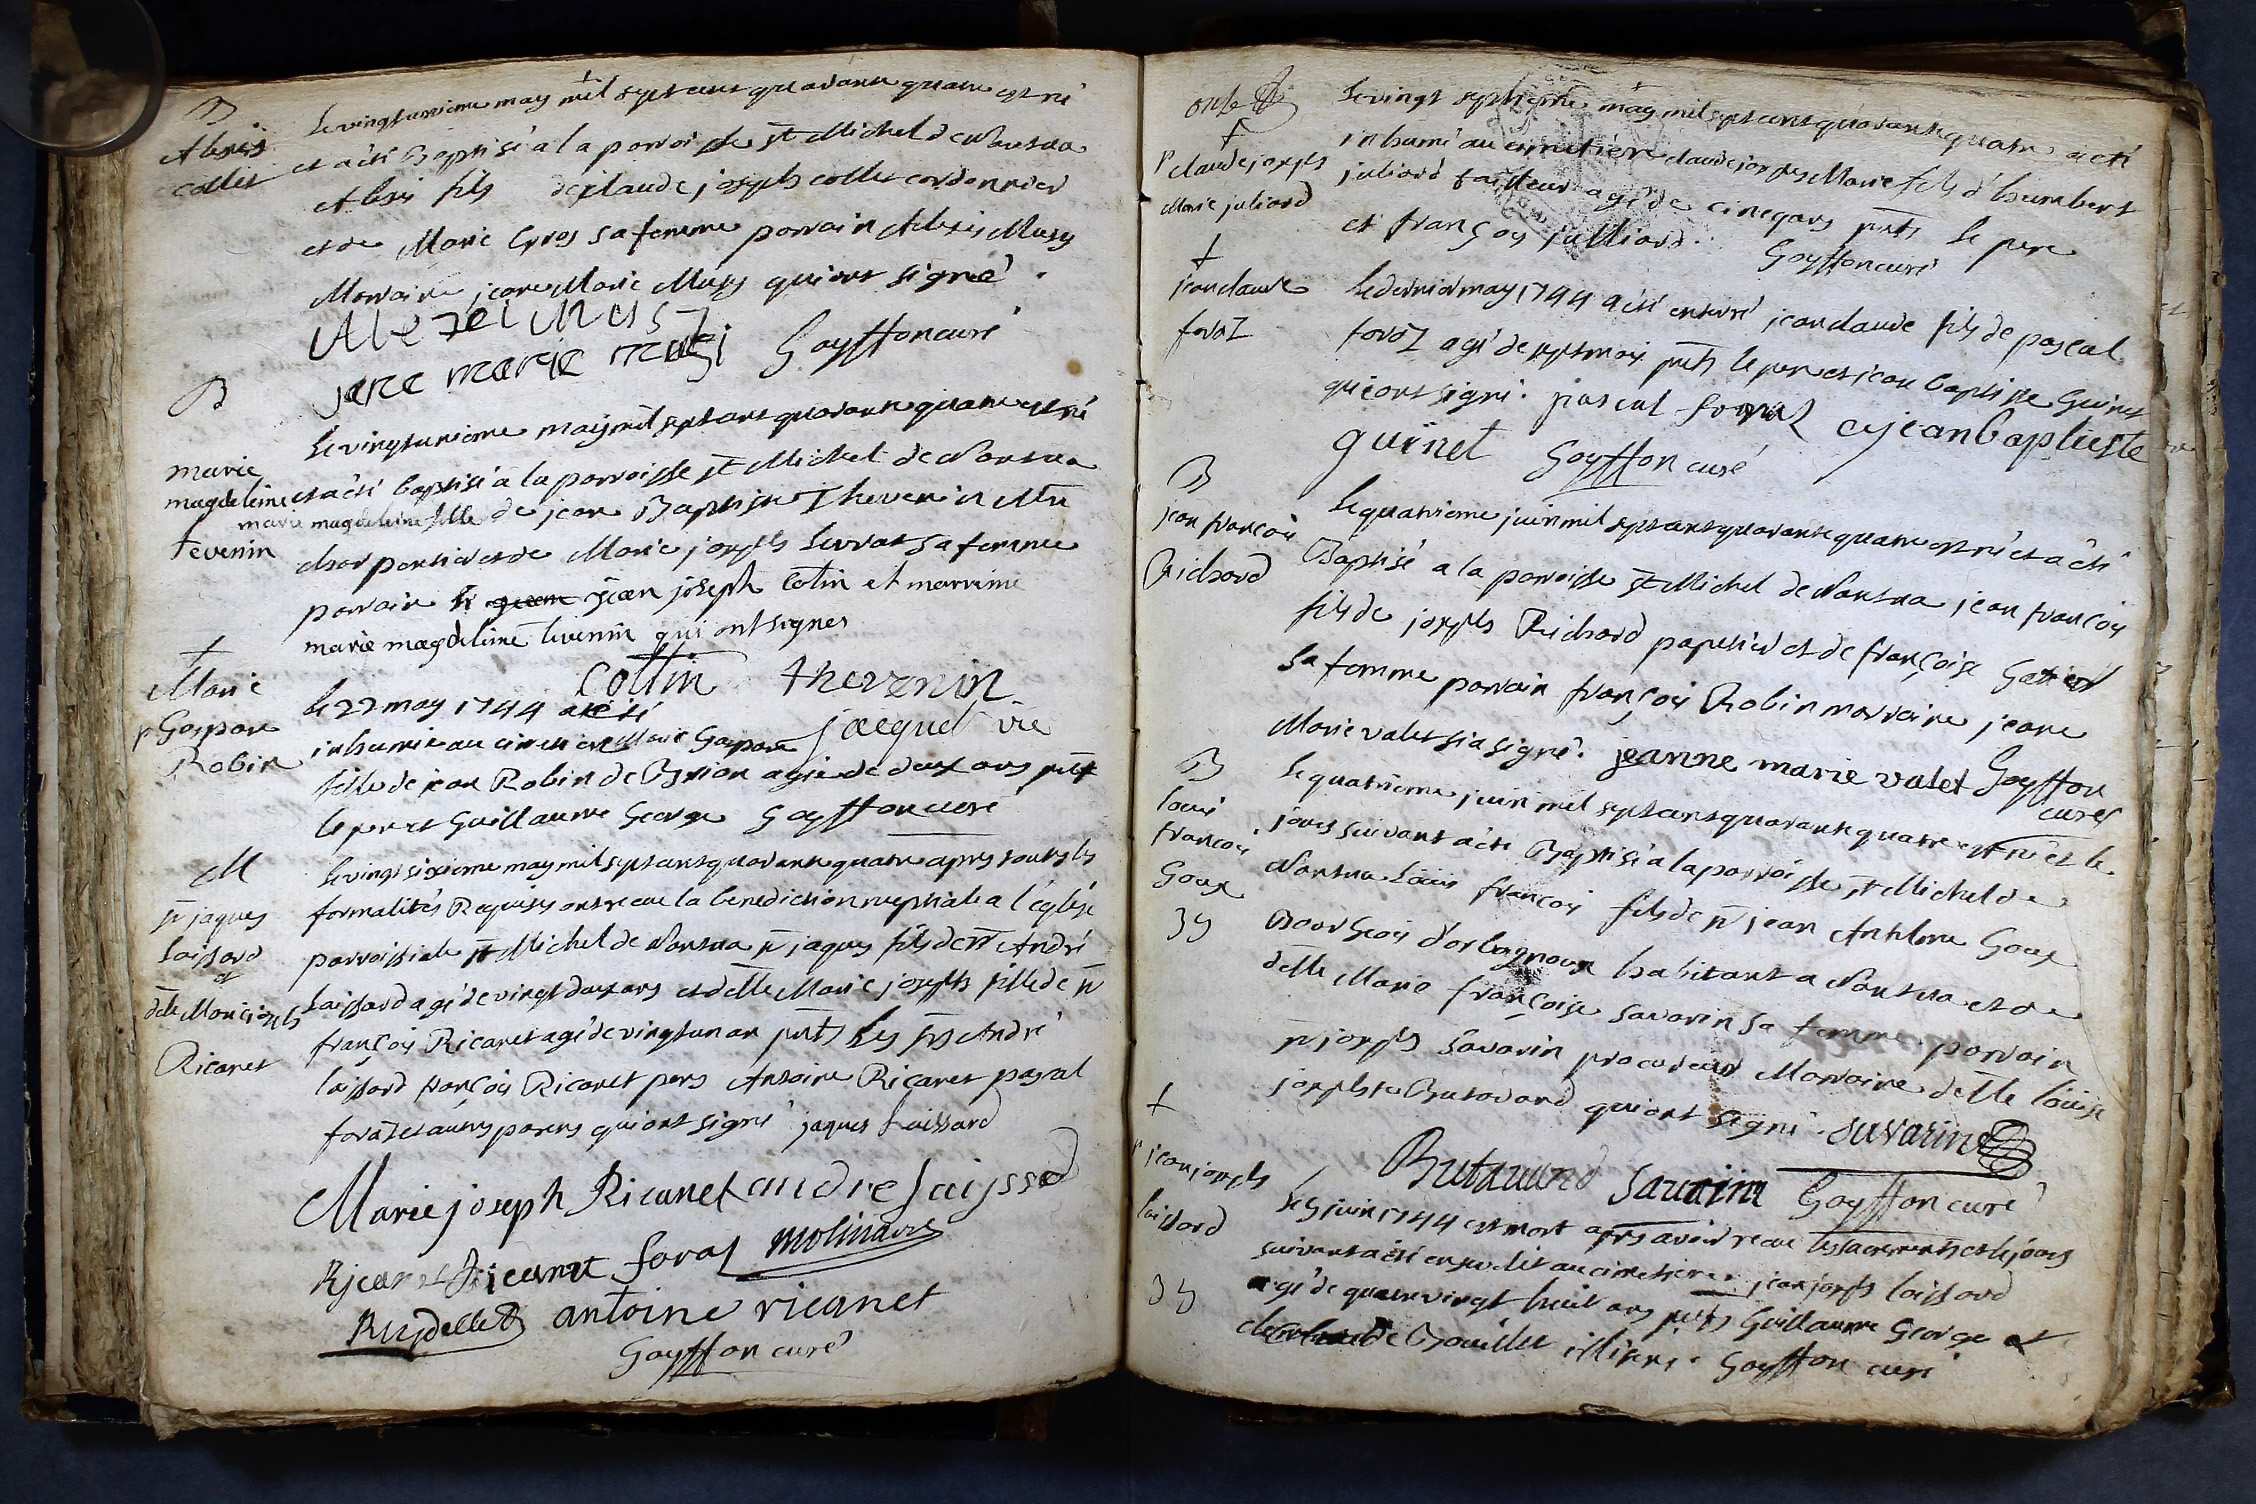 B
Alexis
collet
Le vingtunieme may mil sept cent quarante quatre est né
et a été Baptisé a la parroisse St Michel de Nantua
Alexis fils de claude joseph collet cordonnier
et de Marie gros sa femme parrain Alexis Musy
Marraine jeane Marie Musy qui ont signé
Alexei Musy
jane marie musi Goyffon curé
B
marie
magdeleine
tevenin
Le vingtunieme may mil sept cent quarante quatre est né
et a été baptisé a la parroisse St Michel de Nantua
marie magdeleine fille de jean Baptiste Thevenin Mtre
charpentier et de Marie joseph sa femme
parrain jean joseph Cotin et marrine
marie magdeleine tevenin qui ont signes
Cottin thevenin
jacquet vic
†
Marie
Gaspare
Robin
le 22 may 1744 a été
inhumée au cimetiere Marie Gaspare
fille de jean Robin de Brion agée de deux ans pnts
le pere et Guillaume George Goyffon curé
M
Sr jaques
Laissard
et
delle Marie joseph
Ricanet
Le vingt sixieme may mil sept cent quarante quatre apres toutes les
formalités Requises ont receue la benediction nuptiale a l'église
parroissiale St Michel de Nantua Sr jaques fils de Sr André
Laissard agé de vingt deux ans et delle Marie joseph fille de Sr
françois Ricanet agé de vingtun an pnts les srs André
laissard françois Ricanet pers Antoine Ricanet pascal
foraz et autres parens qui ont signé jaques Laissard
Marie joseph Ricanet andre Laissard
Ricanet Ricanet foraz molinard
antoine ricanet
Goyffon curé
†
claude joseph
Marie juliard
Le vingt septieme may mil sept cent quarante quatre a été
inhumé au cimetière claude joseph Marie fils d'humbert
juliard tailleur agé de cinq ans pnts le pere
et françois julliard. Goyffon curé
†
jean claude
foraz
Le dernier may 1744 a été enterré jean claude fils de pascal
foraz agé de sept mois pnts le pere et jean baptiste Guinet
qui ont signé. pascal foraz jean Baptieste
guinet Goyffon curé
B
jean françois
Richard
Le quatrieme juin mil sept cent quarante quatre est né et a été
Baptisé a la parroisse St Michel de Nantua jean françois
fils de joseph Richard papetier et de françoise
sa femme parrain françois Robin marraine jeane
Marie valet si a signé. jeanne marie valet Goyffon
curé
B
louis
françois
Goux
Le quatrieme juin mil sept cent quarante quatre est né et le
jour suivant a été Baptisé a la parroisse St Michel de
Nantua Louis françois fils de Sr jean Anthelme Goux
Bourgeois d'orlagnoux habitant a Nantua et de
delle Marie françoise savarin sa femme parrain
Sr joseph savarin procureur Marraine delle louise
josephte Butavand qui ont signé. savarin
Butavand Savarin Goyffon curé
†
jean joseph
laissard
Le 5 juin 1744 est mort apres avoir receue les sacrements et le jour
suivant a été ensevelit au cimetiere jean joseph laissard
agé de quatre vingt huit ans pnts Guillaume George et
Claude Bouillet illiteré. Goyffon curé